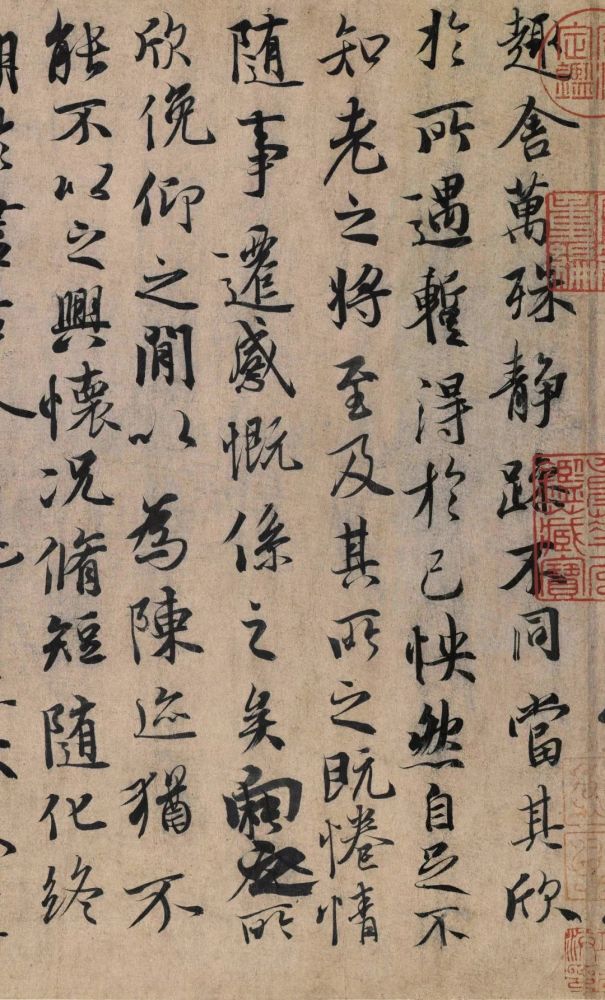 趣舍萬殊静躁不同當其欣
於所遇暫得於己怏然自足不
知老之將至及其所之既惓情
随事遷感慨係之矣向之所
欣俛仰之閒以為陳迹猶不
能不以之興懷况脩短随化終